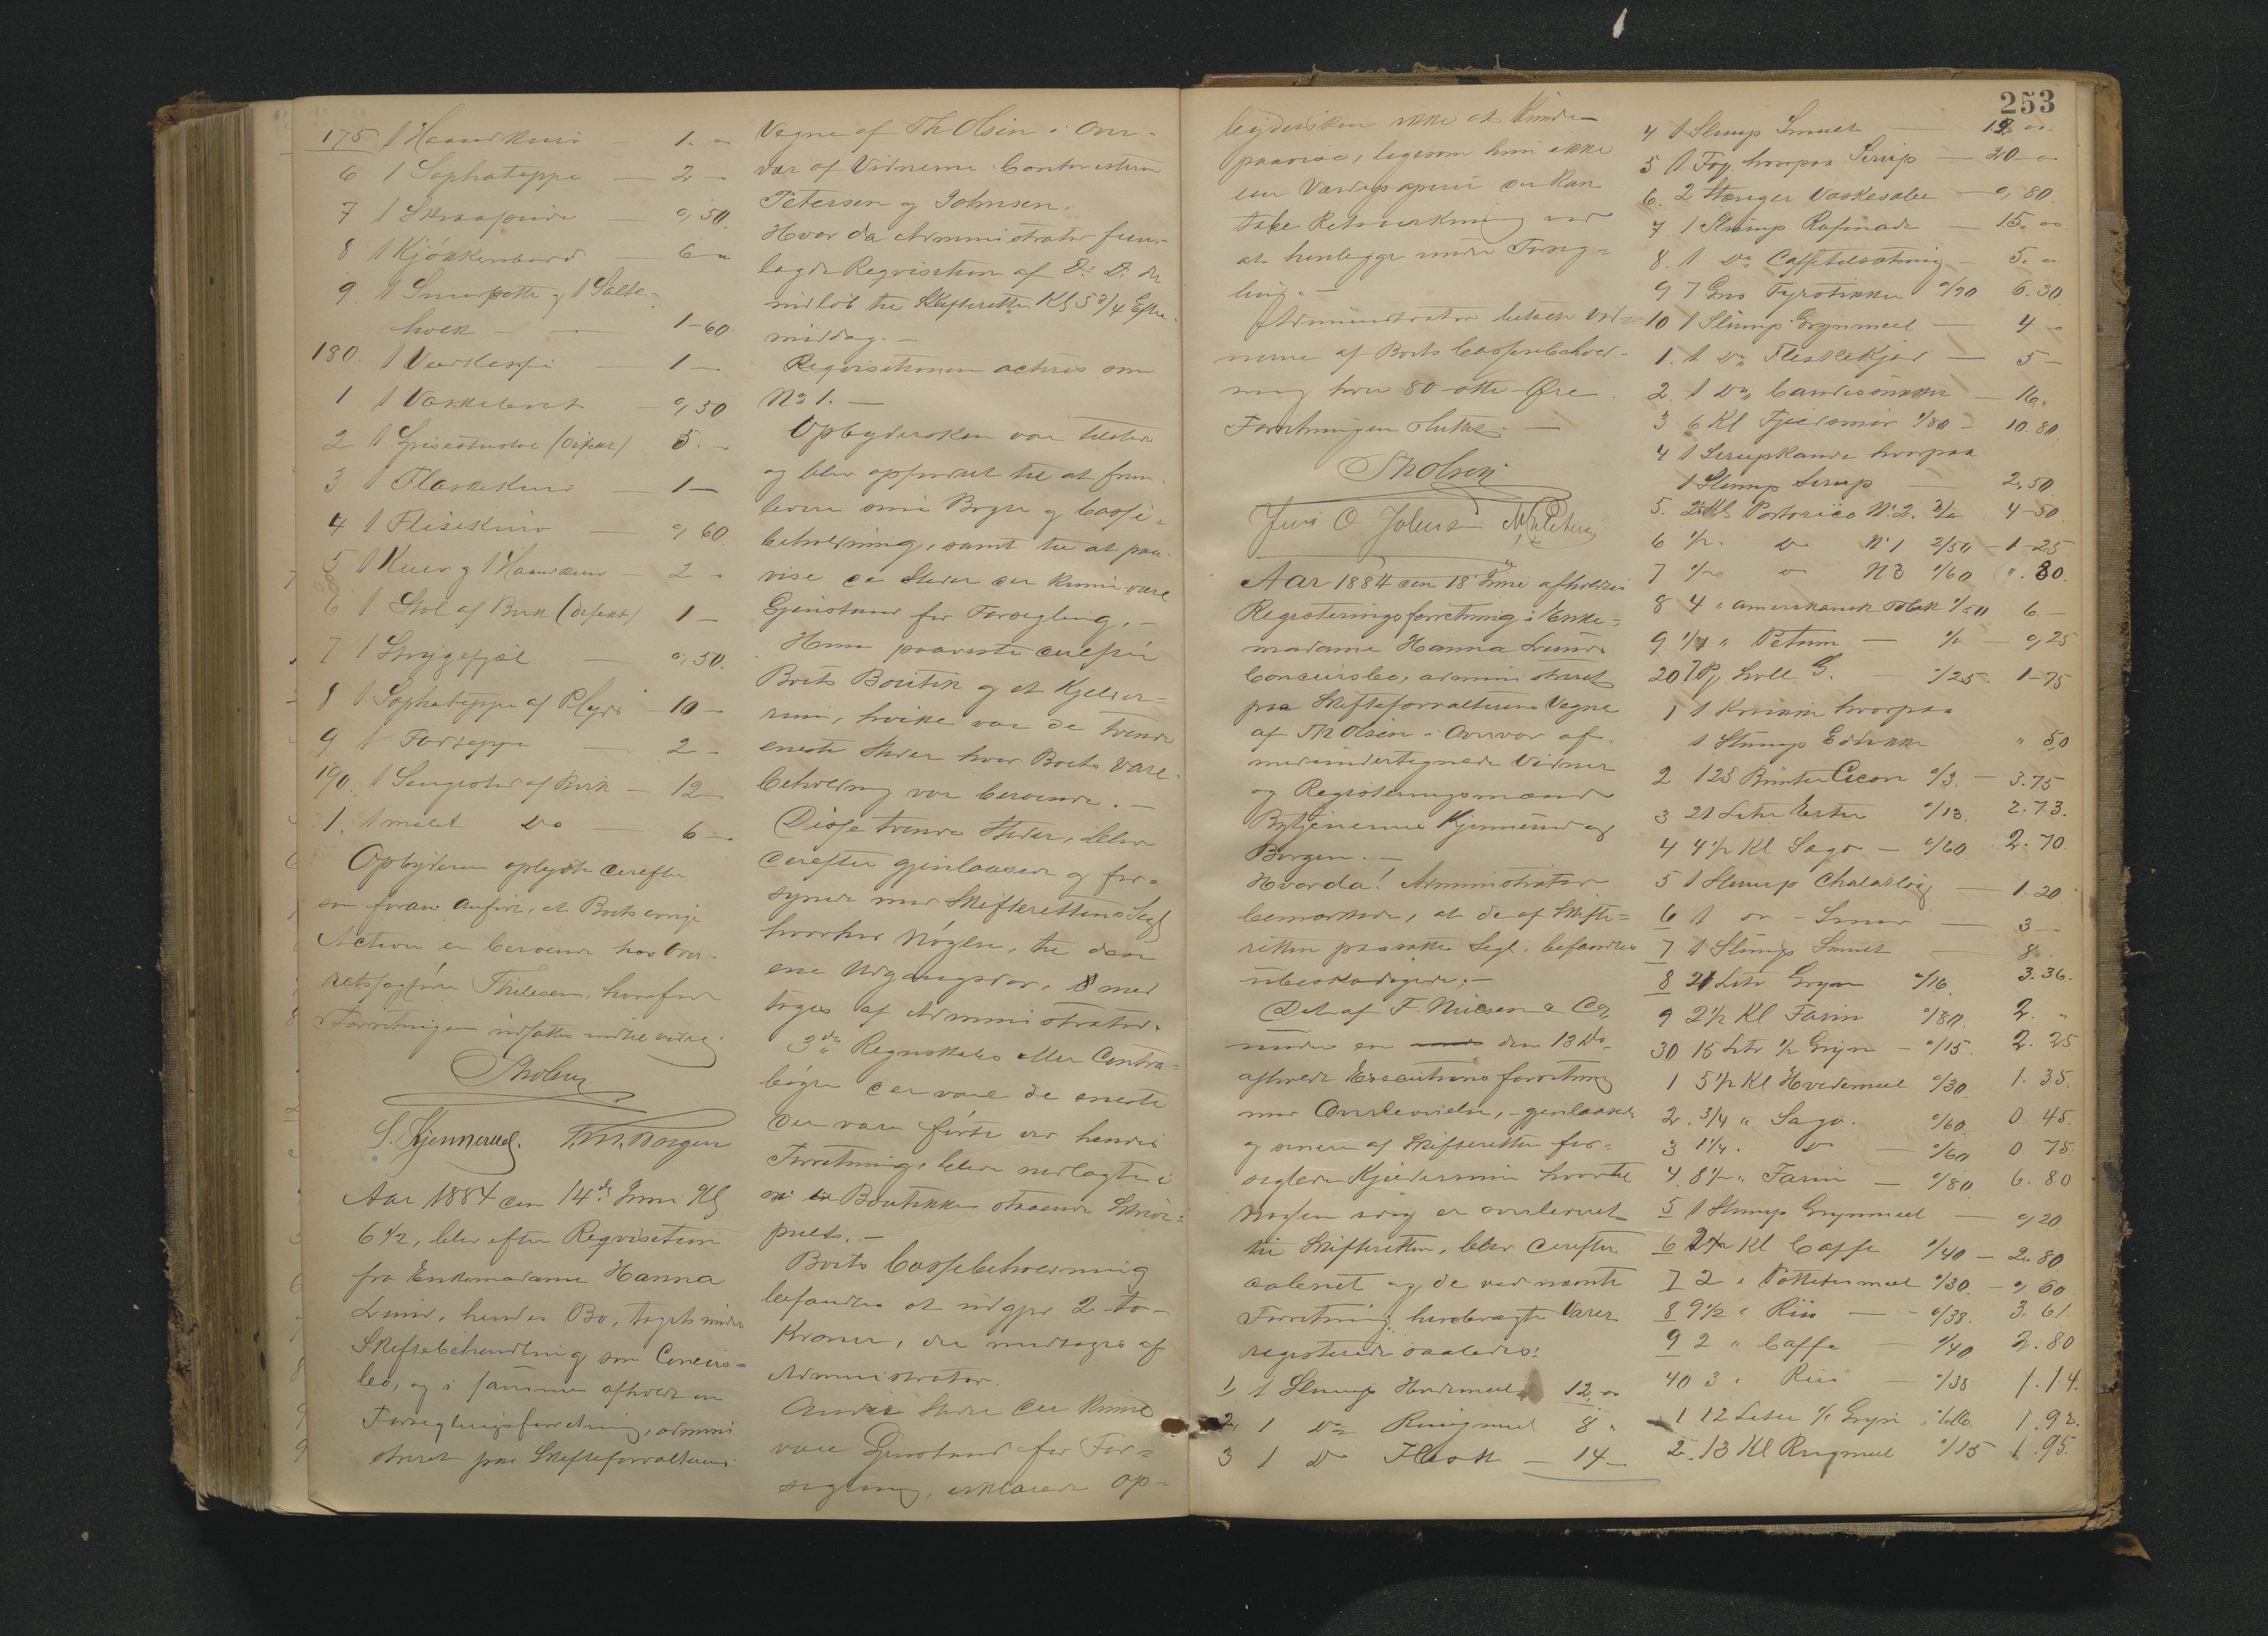 175 1 Haandkurv — 1. "
6 1 Sophateppe — 2 —
7 1 Skraapude — 0,50.
8 1 Kjøkkenbord — 6 "
9. 1 Smørpotte og 1 Salte-
holk — 1-60.
180. 1 — 1 —
1 1 Vaskebret — 0,30
2 1 (Defect) 5. —
3 1 Flaskekurv — 1 —
4 1 Flisekurv — 0,60.
5 1 Kurv og 1 Haandkurv — 2 —
6 1 Stol af Birk (Defect) 1 —
7 1 Strygefjæl — 0,50.
8 1 Sophateppe af Plyds — 10 —
9 1 Forteppe — 2 —
190. 1 Sengested af Birk — 12
1. 1 malet Do — 6 —
Opbyderen oplyste derefter
som foran anført, at Boets øvrige
Activa er beroende hos Over-
retssagfører Thilesen, hvorfor
Forretningen udsattes indtil videre.
Th Olsen
S. Kjennerud. Borgen
Aar 1884 den 14de Juni Kl
6 1/2, blev efter Reqvisition
fra Enkemadame Hanna
Lund, hendes Bo, taget under
Skiftebehandling som Concurs-
bo, og i samme afholdt en
Forseglingsforretning, admini
streret paa Skifteforvalterens
Vegne af Th Olsen i Over-
vær af Vidnerne Contoristerne
Petersen og Johnsen.
Hvor da Administrator frem-
lagde Reqvisition af D: D: der
indløb til Skifteretten Kl 5 3/4 Efter-
middag. —
Reqvisitionen acteres som
No 1. —
Opbydersken var tilstede
og blev opfordret til at frem-
levere sine Bøger og Casse-
beholdning, samt til at paa-
vise de Steder der kunne være
Gjenstand for Forsegling. —
Hun paaviste derefter
Boets Boutik og et Kjelder-
rum, hvilke var de tvende
eneste Steder hvor Boets Vare-
beholdning var beroende. —
Disse tvende Steder, blev
derefter gjenlaasede og for-
synede med Skifterettens Segl
hvorhos Nøglen, til den
ene Udgangsdør, med
toges af Administrator.
3de Regnskabs eller Contra-
bøger der vare de eneste
der vare førte ved hendes
Forretning, bleve nedlagte i
et i Boutikken staaende Skriv-
pult. —
Boets Cassebeholdning
befandtes at udgjøre 2 - to -
Kroner, der medtoges af
Administrator.
Andre Steder der kunne
være Gjenstand for For-
segling, erklærede Op-
253
bydersken ikke at kunde
paavise, ligesom hun ikke
eier Værdipapirer der kan
tabe Retsvirkning ved
at henlægge under Forseg-
ling. —
Administrator betalte Vid-
nerne af Boets Cassebehold-
ning hver 80 - otti - Øre.
Forretningen sluttet. —
Th Olsen
Jens O Johnsen Petersen
Aar 1884 den 18 Juni afholdtes
Registreringsforretning i Enke-
madame Hanna Lunds
Concursbo, administreret
paa Skifteforvalterens Vegne
af Th Olsen i Overvær af
medundertegnede Vidner
og Registreringsmænd
Bytjenerne Kjennerud og
Borgen. —
Hvorda! Administrator
bemærkede, at de af Skifte-
retten paasatte Segl, befandtes
ubeskadigede. —
Det af F. Nielsen & Co,
under en den 13 ds
afholdt Executionsforretning
med Overleverelse, gjenlaasede
og senere af Skifteretten for-
seglede Kjelderrum hvortil
Nøglen idag er overleveret
til Skifteretten, blev derefter
aabnet og, de ved nævnte
Forretning henbragte Varer
registrerede saaledes:
1, 1 Slump Hvedemeel 12. "
2, 1 Do Rugmeel 8 "
3 1 Do — 14 —
4 1 Slump Smult — 12. "
5 1 Fog. hvorpaa Sirup — 20 "
6. 2 Stænger Vaskesæbe — 0,80.
7. 1 Slump Rafinade — 15. "
8. 1 Do Caffetilsætning — 5. "
9 7 Gros Fyrstikker 0/90 6.30
10 1 Slump Grynmeel — 4 "
1. 1 Do Fleskekjød — 5 —
2. 1 Do Candissukker — 16.
3 6 Kl Fjeldsmør 1/80 — 10.80
4 1 Sirupskande hvorpaa
1 Slump Sirup — 2,50
5. Kl. Portorico No 2. 4-50.
6 1/2 " Do No 1 2/50 — 1-25
7 1/2 " Do N 3 1/60 ". 80.
8 4 " amerikansk Tobak 1/50 6. —
9 " Petum — 0,25
20 7 Pj. G. — 0/25. 1-75
1 1 Krukke hvorpaa
1 Slump Eddikke " 50
2 125 Bundter Cicori 0/3. — 3.75
3 21 Liter Erter 0/13. 2.73.
4 4 1/2 Kl Sago — 0/60. 2.70.
5 1 Slump — 1.20
6 1 do — 3 —
7 1 Slump Smult — 8.
8 21 Liter Gryn 0/16. 3.36.
9 2 1/2 Kl Farin 0/80. 2. "
30 15 Liter 1/2 Gryn — 0/15. 2.25
1 5 1/2 Kl Hvedemeel 0/30 1.35.
2. 3/4 " Sago. 0/60. 0 45.
3 1 1/4 " Do — 0/60 0 75.
4 8 1/2 " Farin — 0/80. 6.80
5 1 Slump Grynmeel — 0,20.
6 Kl Caffe 1/40 — 2.80
7 2 " Potetesmeel 0/30. — 0,60
8 9 1/2 " Riis — 0/38. 3.61.
9 2 " Caffe — 1/40 2.80
40 3 " Riis — 0/38 1.14.
1 12 Liter 1/1 Gryn 0/16. 1.92.
2. 13 Kl Rugmeel 0/15 1.95.